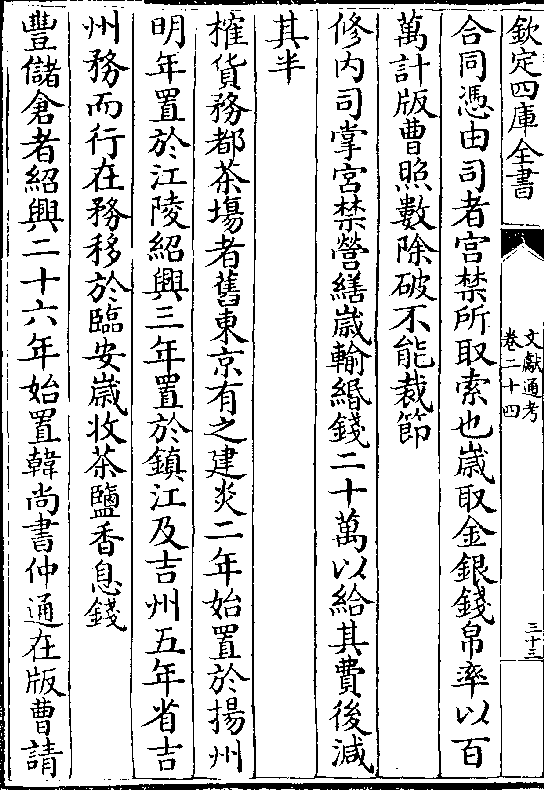 欽定四庫全書
文獻通考
卷二十四
三十三
合同憑由司者宮禁所取索也嵗取金銀錢帛率以百
萬計版曹照數除破不能裁節
修内司掌宮禁營繕嵗輸緡錢二十萬以給其費後減
其半
榷貨務都茶塲者舊東京有之建炎二年始置於揚州
明年置於江陵紹興三年置於鎮江及吉州五年省吉
州務而行在務移於臨安嵗收茶鹽香息錢
豐儲倉者紹興二十六年始置韓尚書仲通在版曹請